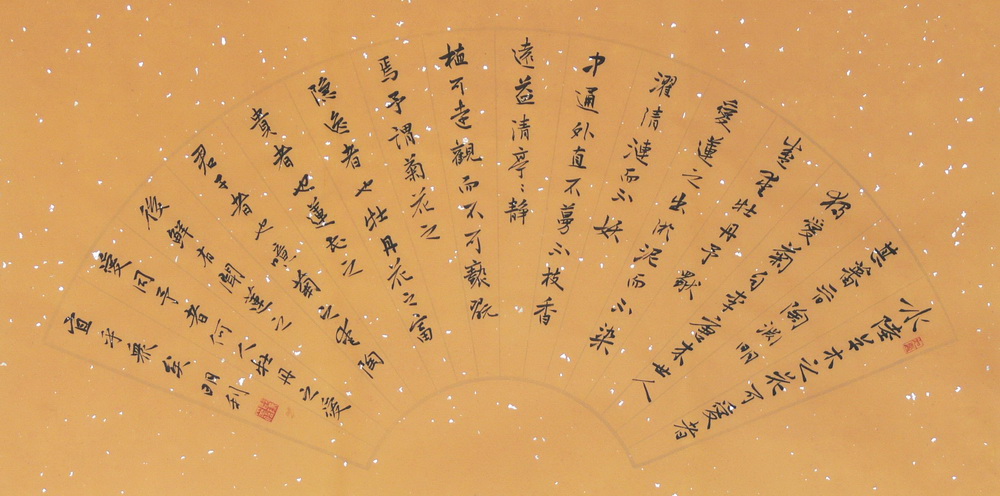 水陸草木之花可愛者
甚蕃晉陶淵明
獨愛菊自李唐來世人
盛愛牡丹予獨
愛蓮之出淤泥而不染
濯清漣而不妖
中通外直不蔓不枝香
遠益清亭〻靜
植可遠觀而不可褻玩
焉予謂菊花之
隱逸者也牡丹花之富
貴者也蓮花之
君子者也噫菊之愛陶
後鮮有聞蓮之
愛同予者何人牡丹之愛
宜乎眾矣明